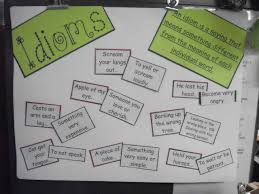 idioms
An idiom is a saying that
means something different
from the meaning of each
individual word.
Scream
your lungs
out.
To yell or
scream
loudly
He lost his
head.
Become very
angry
Apple of my
eye.
Someone you
love or
cherish.
Costs an
arm and a
leg.
Something
very
expensive
Barking up
the wrong
tree.
Looking in the
Cat got your
tongue.
To not speak.
A piece of
cake.
Something
very easy or
simple.
Hold your
horses.
To wait or be